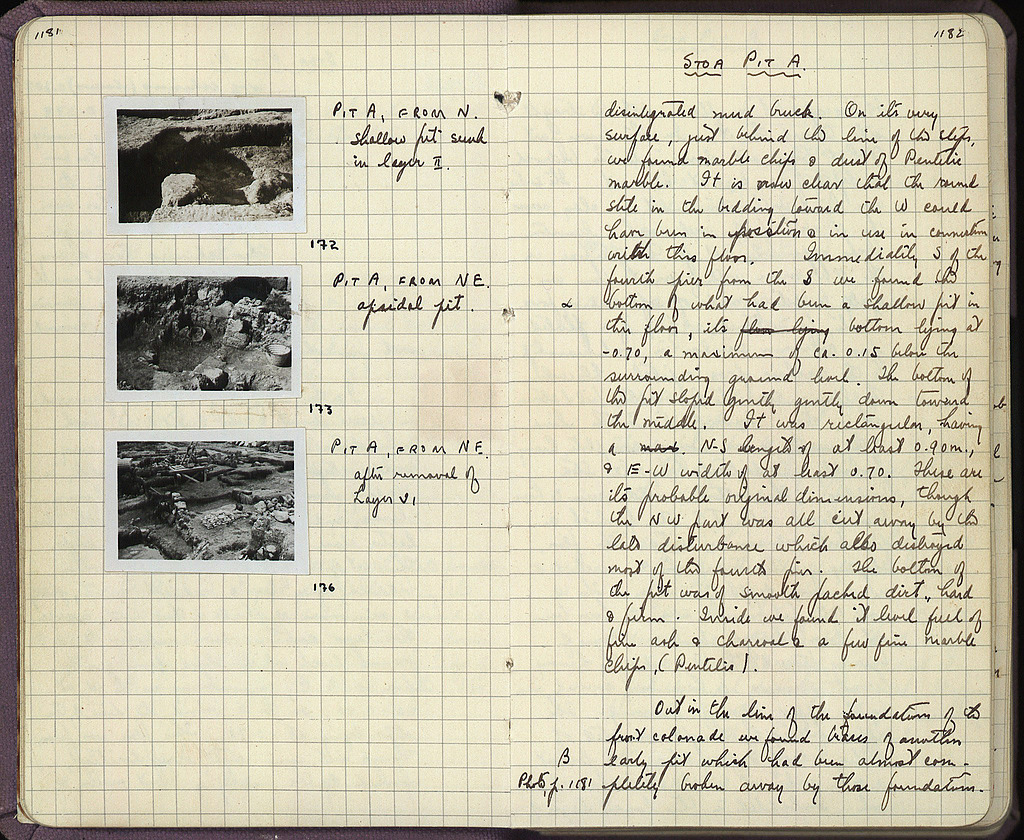 1181
PIT A, FROM N.
shallow pit sunk
in layer II.
172
PIT A, FROM NE.
apsidal pit.
173
PIT A, FROM NE.
after removal of
Layer VI
176
1182
STOA PIT A.
disintegrated mud brick. On its very
surface, just behind the line of the steps,
we found marble chips & dust of Pentelic
marble. It is now clear that the round
slite in the bedding toward the W could
have been in position & in use in connection
with this floor. Immediately S of the
fourth pier from the S we found the
α bottom of what had been a shallow pit in
this floor, its floor lying bottom lying at
-0.70, a maximum of ca. 0.15 below the
surrounding ground level. The bottom of
the pit sloped gently gently down toward
the middle. It was rectangular, having
a max. N-S length of at least 0.90 m.,
& E-W width of at least 0.70. These are
its probable original dimensions, though
the NW part was all cut away by the
late disturbance which also destroyed
most of the fourth pier. The bottom of
the pit was of smooth packed dirt, hard
& firm. Inside we found it level full of
fine ash & charcoal & a few fine marble
chips, (Pentelic).
Out in the line of the foundations of the
front colonade we found traces of another
β early pit which had been almost com-
Photo, p. 1181 pletely broken away by those foundations.